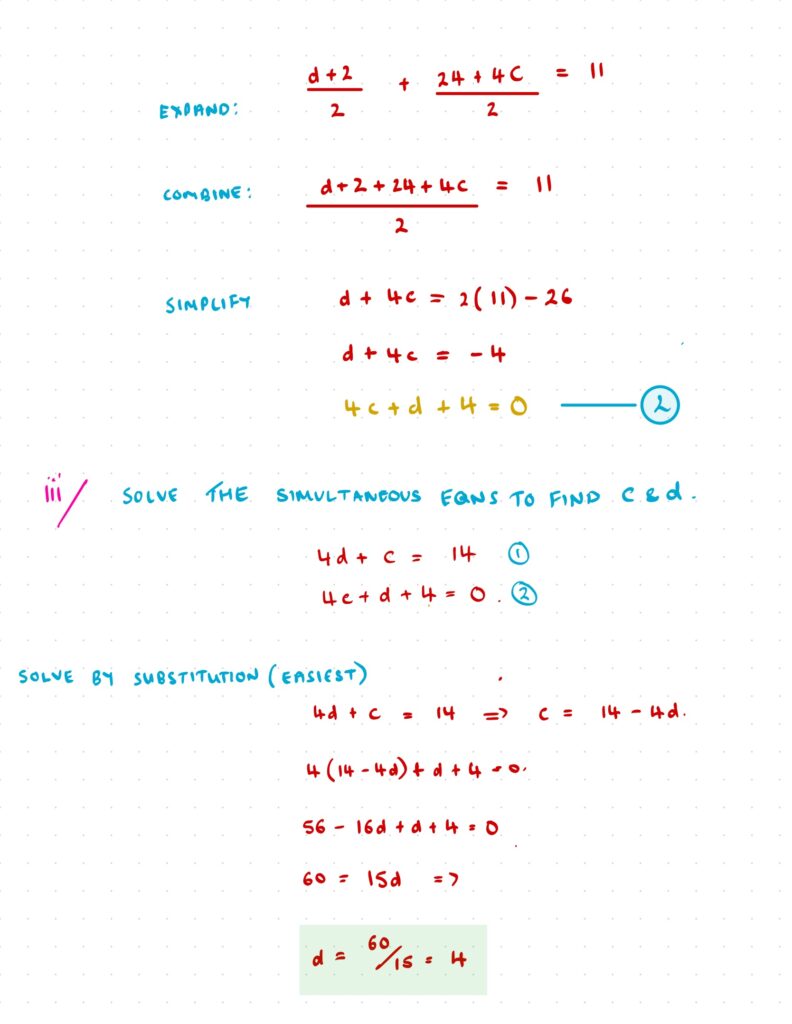 d+2/2 + 24+4C/2 = 11
EXPAND:
COMBINE: d+2+24+4c/2 = 11
SIMPLIFY d + 4c = 2(11) - 26
d + 4c = -4
4c + d + 4 = 0 —— 2
iii/ SOLVE THE SIMULTANEOUS EQNS TO FIND C & d.
4d + c = 14 1
4c + d + 4 = 0 . 2
SOLVE BY SUBSTITUTION (EASIEST)
4d + c = 14 => c = 14 - 4d.
4(14 - 4d) + d + 4 = 0.
56 - 16d + d + 4 = 0
60 = 15d =>
d = 60/15 = 4